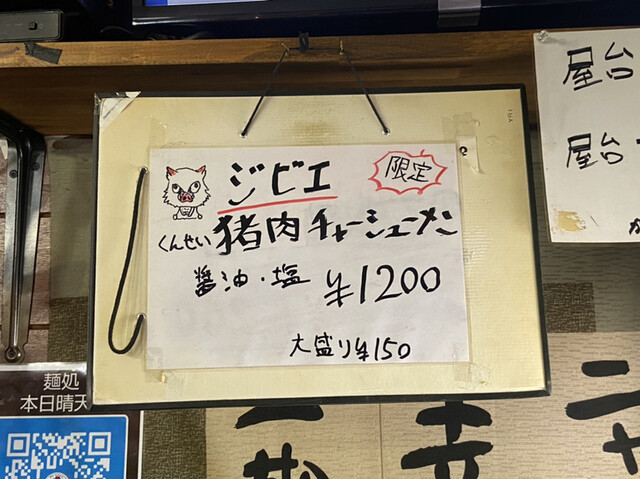 ジビエ
限定
くんせい猪肉チャーシューメン
醤油・塩 ¥1200
大盛り¥150
屋台
屋台
麺処
本日晴天